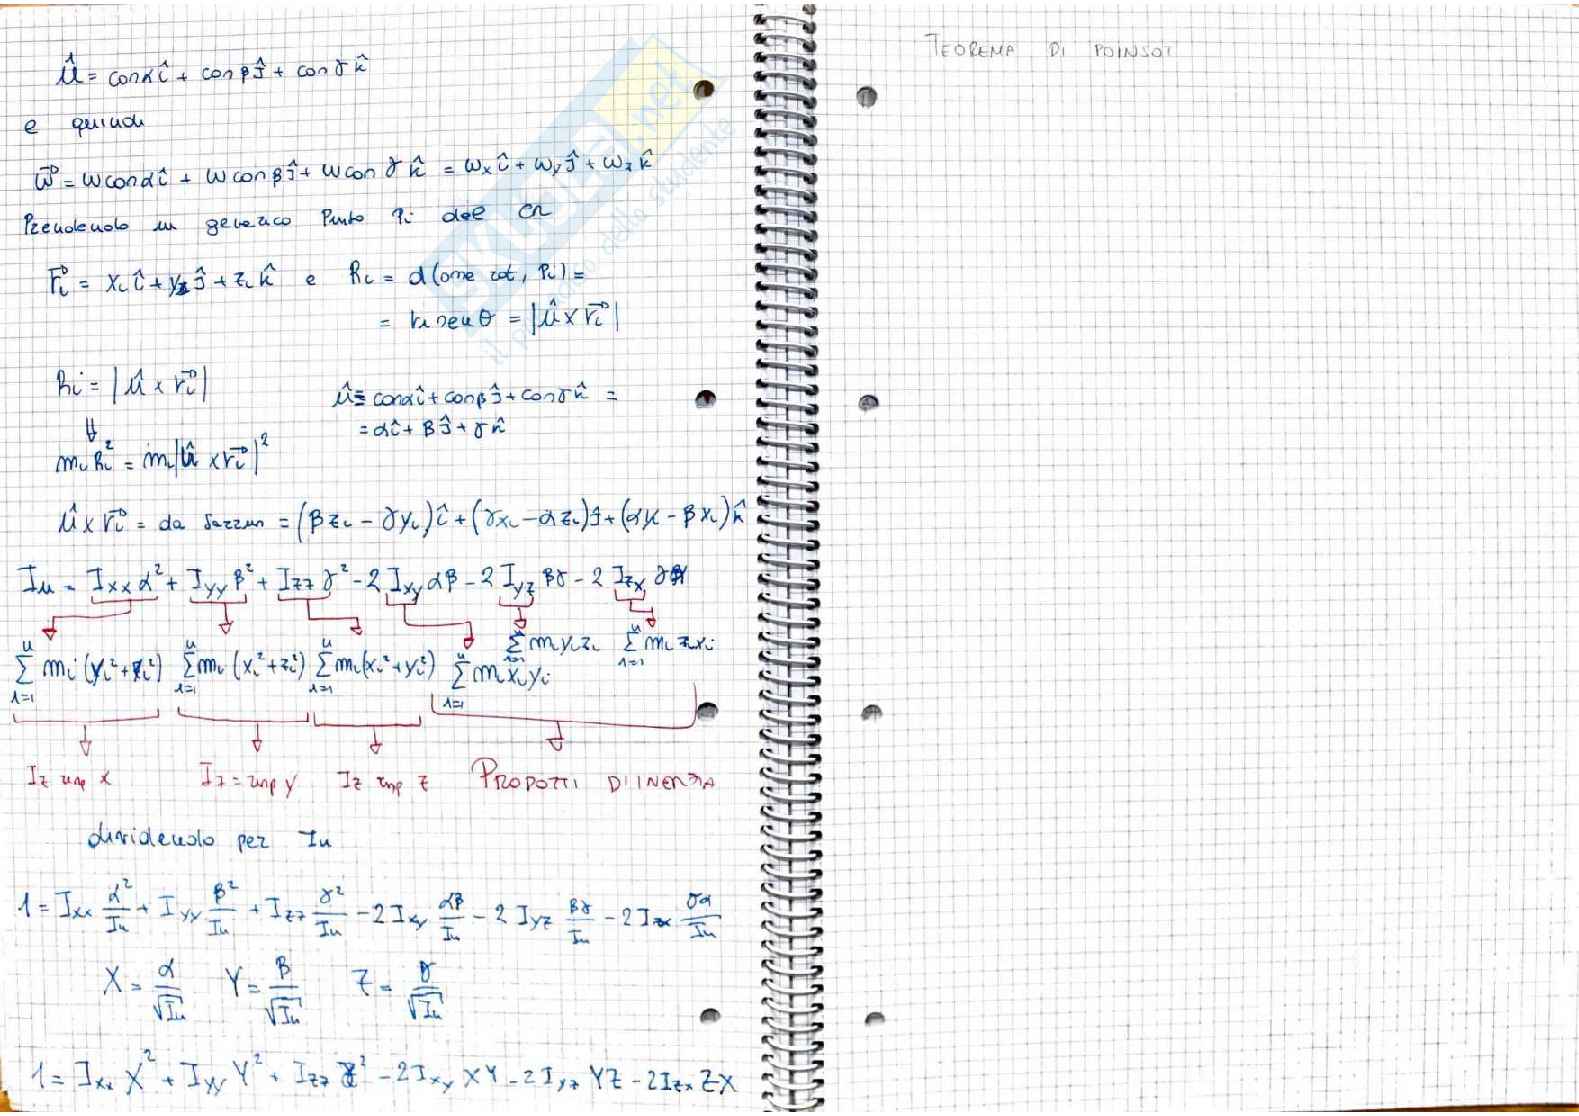 û = cosα î + cosβ ĵ + cosγ k̂
e quindi
ω⃗ = ω cosα î + ω cosβ ĵ + ω cosγ k̂ = ωx î + ωy ĵ + ωz k̂
Prendendo un generico Punto Pi del CR
r⃗i = xi î + yi ĵ + zi k̂ e Ri = d(asse rot, Pi) =
= ri sen θ = |û × r⃗i|
Ri = |û × r⃗i|
û = cosα î + cosβ ĵ + cosγ k̂ =
= α î + β ĵ + γ k̂
⇓
mi Ri² = mi |û × r⃗i|²
û × r⃗i = da = (β zi − γ yi) î + (γ xi − α zi) ĵ + (α yi − β xi) k̂
Iu = Ixx α² + Iyy β² + Izz γ² − 2 Ixy αβ − 2 Iyz βγ − 2 Izx γα
Σ i=1 n mi (yi² + zi²) Σ i=1 n mi (xi² + zi²) Σ i=1 n mi (xi² + yi²) Σ i=1 n mi xi yi Σ i=1 n mi yi zi Σ i=1 n mi zi xi
Iz x Iz = y Iz z PRODOTTI D'INERZIA
dividendo per Iu
1 = Ixx α²/Iu + Iyy β²/Iu + Izz γ²/Iu − 2 Ixy αβ/Iu − 2 Iyz βγ/Iu − 2 Izx γα/Iu
X = α/√Iu Y = β/√Iu Z = γ/√Iu
1 = Ixx X² + Iyy Y² + Izz Z² − 2 Ixy XY − 2 Iyz YZ − 2 Izx ZX
TEOREMA DI POINSOT